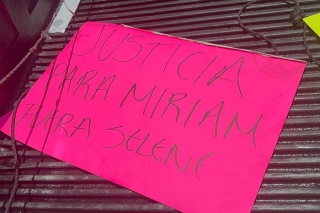 JUSTICIA
PARA MIRIAM
PARA SELENE